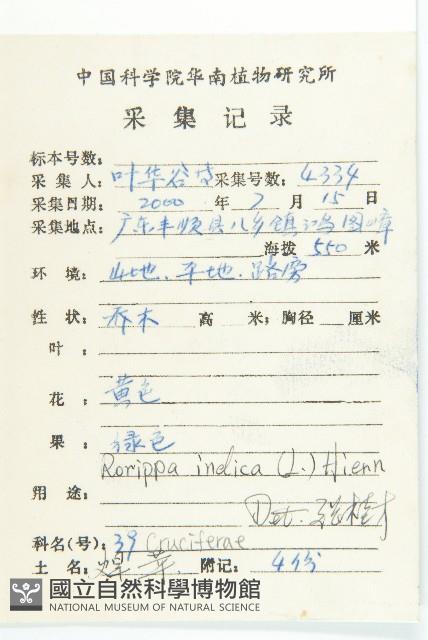 中国科学院华南植物研究所
采集记录
标本号数:
采集人: 叶华谷等 采集号数: 4334
采集日期: 2000 年 7 月 15 日
采集地点: 广东丰顺县八乡镇鸿图嶂
海拨 550 米
环境: 山地、平地、路旁
性状: 乔木 高 米; 胸径 厘米
叶:
花: 黄色
果: 绿色
Rorippa indica (L.) Hiern
用途:
Det.
科名(号): 39 Cruciferae
土名: 蔊菜 附记: 4份
國立自然科學博物館
NATIONAL MUSEUM OF NATURAL SCIENCE